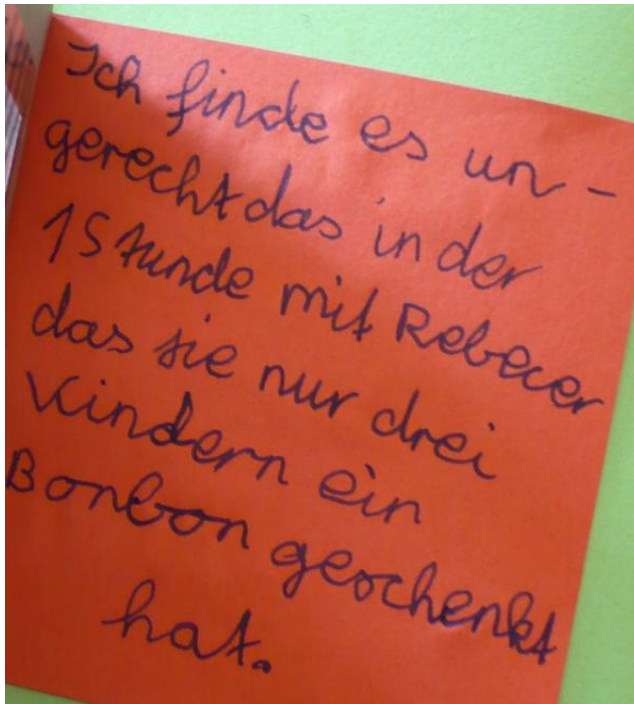 Ich finde es un-
gerecht das in der
1 Stunde mit Rebecer
das sie nur drei
Kindern ein
Bonbon geschenkt
hat.